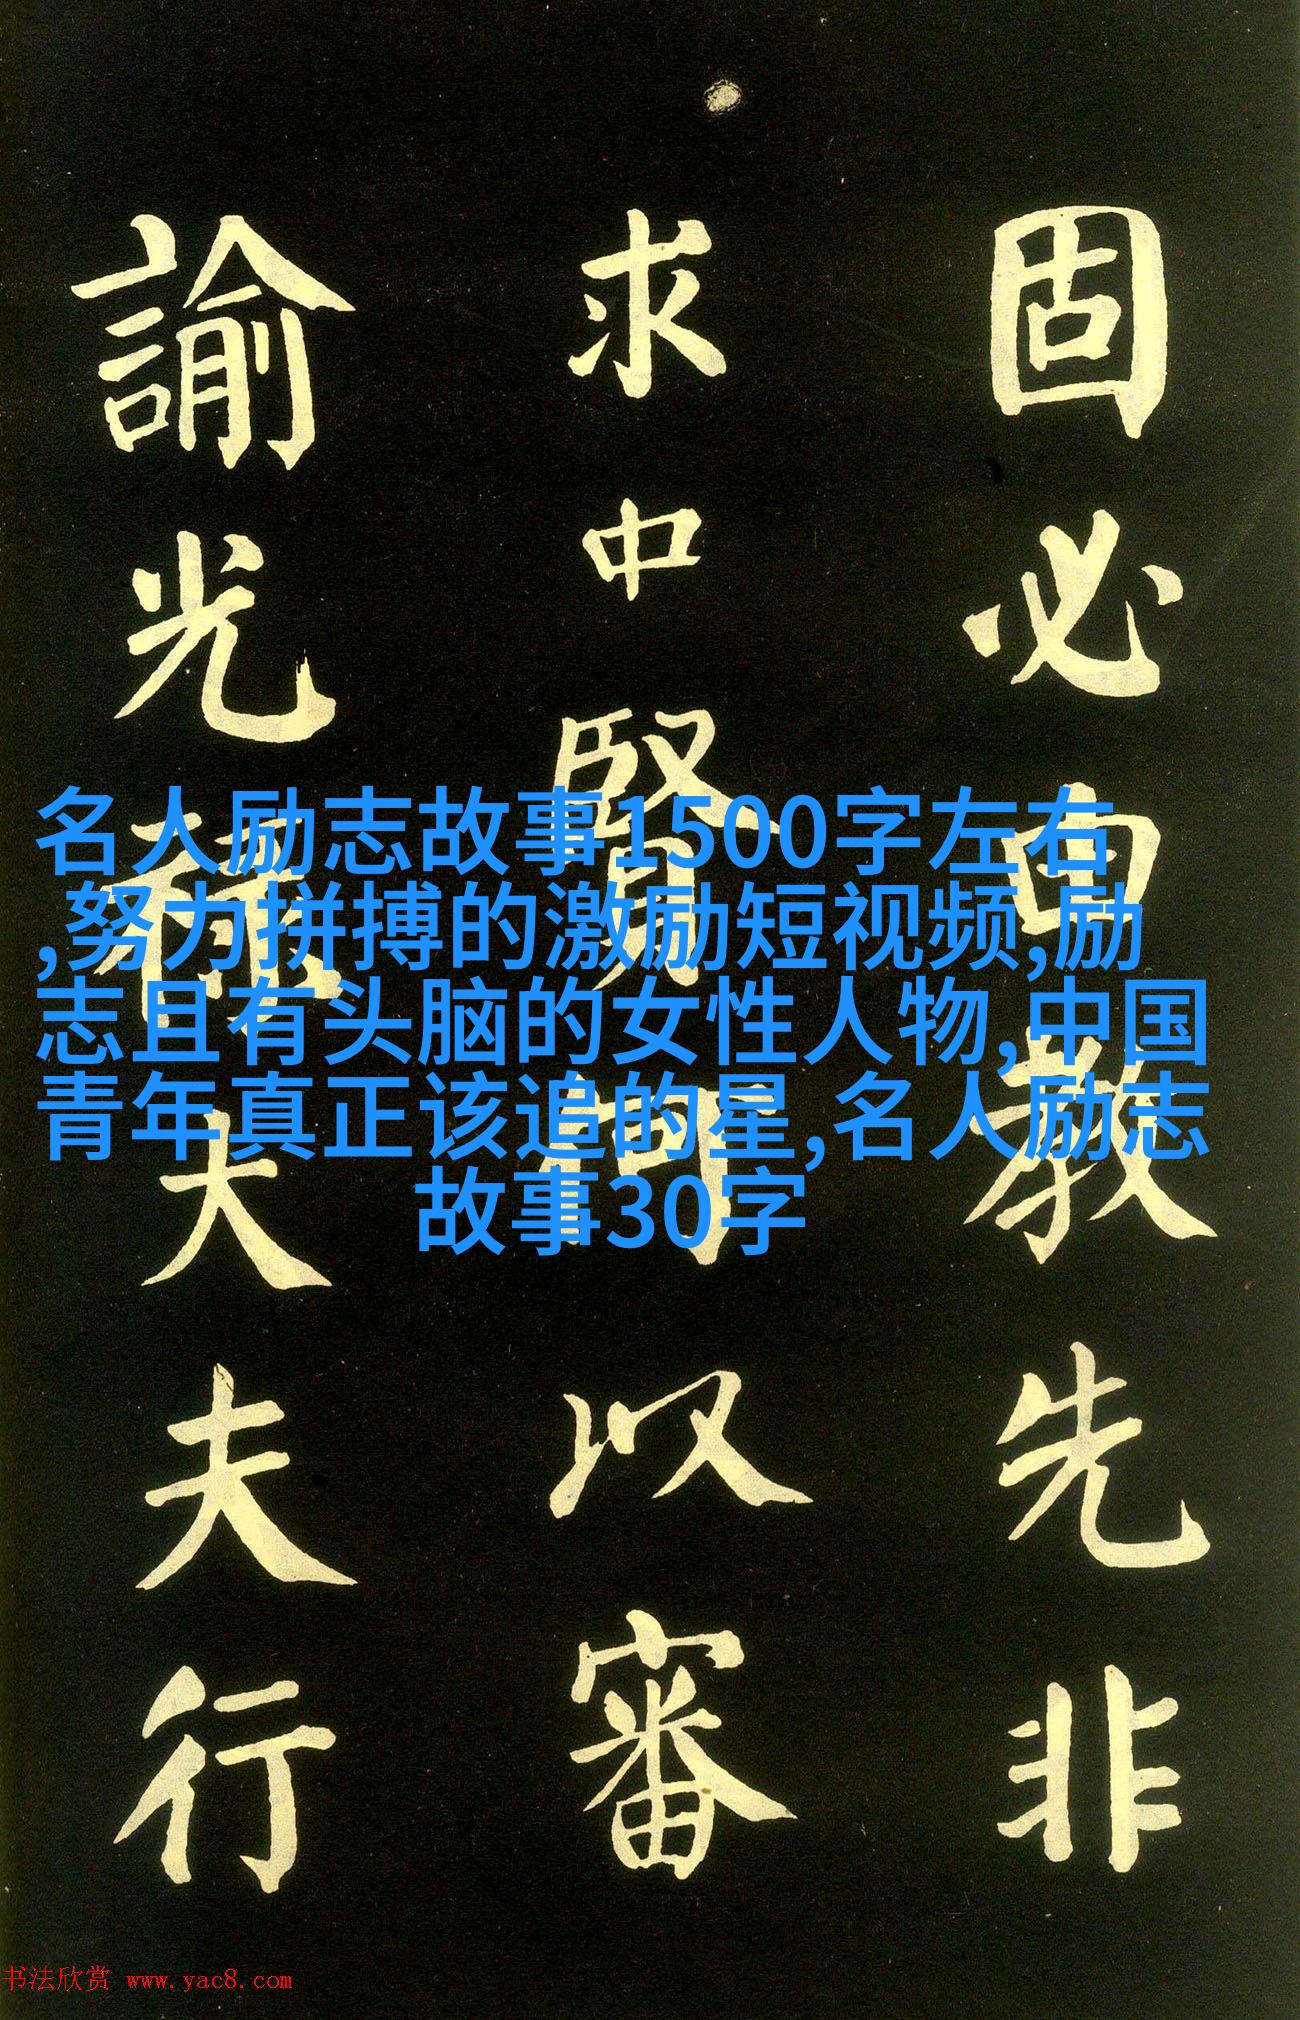 固必由教先非
求中賢何以審
諭光祿大夫行
名人励志故事1500字左右
,努力拼搏的激励短视频,励
志且有头脑的女性人物,中国
青年真正该追的星,名人励志
故事30字
书法欣赏 www.yac8.com